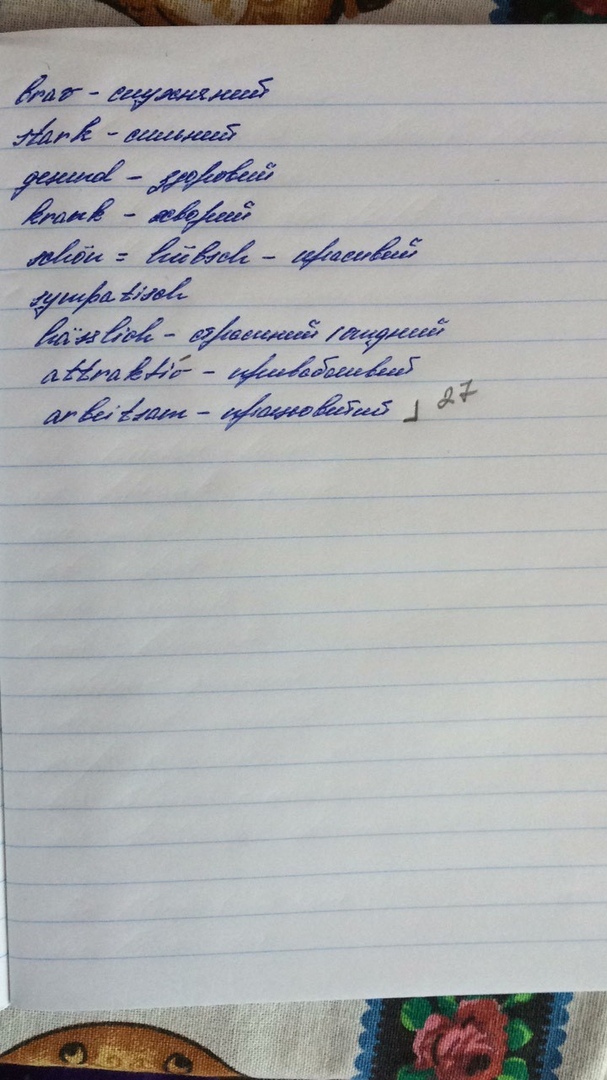 brav - слухняний
stark - сильний
gesund - здоровий
krank - хворий
schön = hübsch - красивий
sympatisch
hässlich - страшний / огидний
attraktiv - привабливий
arbeitsam - працьовитий 27